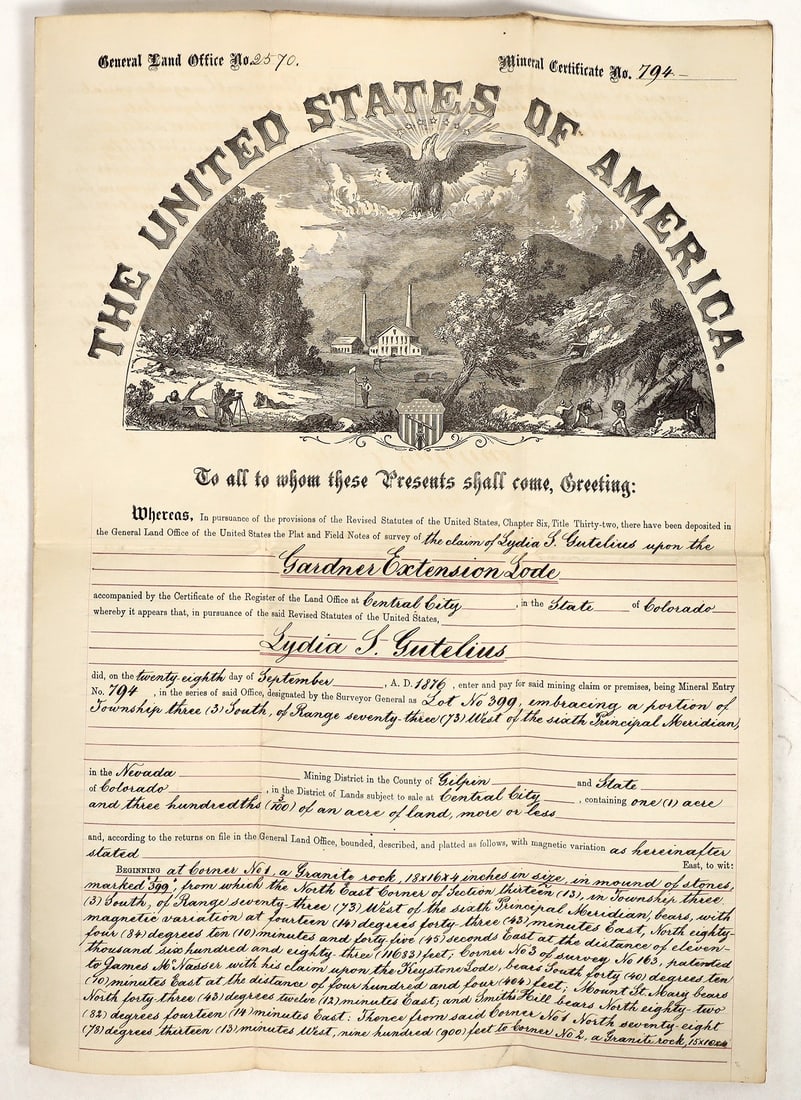 General Land Office No. 2570.
Mineral Certificate No. 794
THE UNITED STATES OF AMERICA.
To all to whom these Presents shall come, Greeting:
Whereas, In pursuance of the provisions of the Revised Statutes of the United States, Chapter Six, Title Thirty-two, there have been deposited in
the General Land Office of the United States the Plat and Field Notes of survey of the claim of Lydia S. Gutelius upon the
Gardner Extension Lode
accompanied by the Certificate of the Register of the Land Office at Central City, in the State of Colorado
whereby it appears that, in pursuance of the said Revised Statutes of the United States,
Lydia S. Gutelius
did, on the twenty-eighth day of September, A. D. 1876, enter and pay for said mining claim or premises, being Mineral Entry
No. 794, in the series of said Office, designated by the Surveyor General as Lot No 399, embracing a portion of
Township three (3) South, of Range seventy-three (73) West of the sixth Principal Meridian,
in the Nevada Mining District in the County of Gilpin and State
of Colorado, in the District of Lands subject to sale at Central City, containing one (1) acre
and three hundredths (3/100) of an acre of land, more or less
and, according to the returns on file in the General Land Office, bounded, described, and platted as follows, with magnetic variation as hereinafter
stated East, to wit:
BEGINNING at Corner No 1, a Granite rock, 18x16x4 inches in size, in mound of stones,
marked "399", from which the North East Corner of Section thirteen (13), in Township three
(3) South, of Range seventy-three (73) West of the sixth Principal Meridian, bears, with
magnetic variation at fourteen (14) degrees forty-three (43) minutes East, North eighty-
four (84) degrees ten (10) minutes and forty-five (45) seconds East at the distance of eleven-
thousand six hundred and eighty-three (11683) feet; Corner No 3 of survey No 163, patented
to James McNasser with his claim upon the Keystone Lode, bears South forty (40) degrees ten
(10) minutes East at the distance of four hundred and four (404) feet; Mount St. Mary bears
North forty-three (43) degrees twelve (12) minutes East; and Smiths Hill bears North eighty-two
(82) degrees fourteen (14) minutes East: Thence from said Corner No 1 North seventy-eight
(78) degrees thirteen (13) minutes West, nine hundred (900) feet to Corner No 2, a Granite rock, 15x10x4